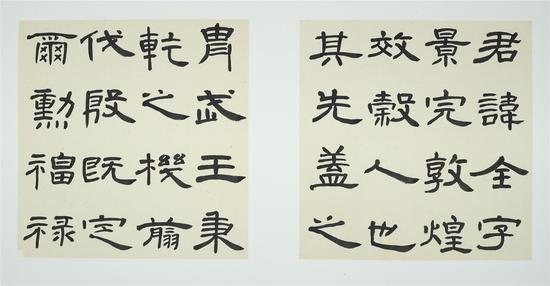 君諱全字
景完敦煌
效穀人也
其先蓋之
胄武王秉
乾之機翦
伐殷既定
爾勳福禄